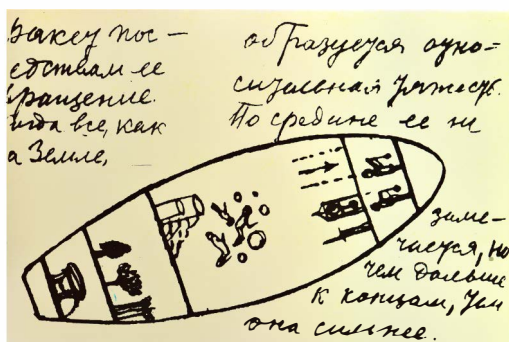 ракету пос-
едствам ее
вращение.
огда все, как
а Земле,
образуется отно-
сительная тяжесть.
По средине ее не
заме-
чается, но
чем дальше
к концам, тем
она сильнее.